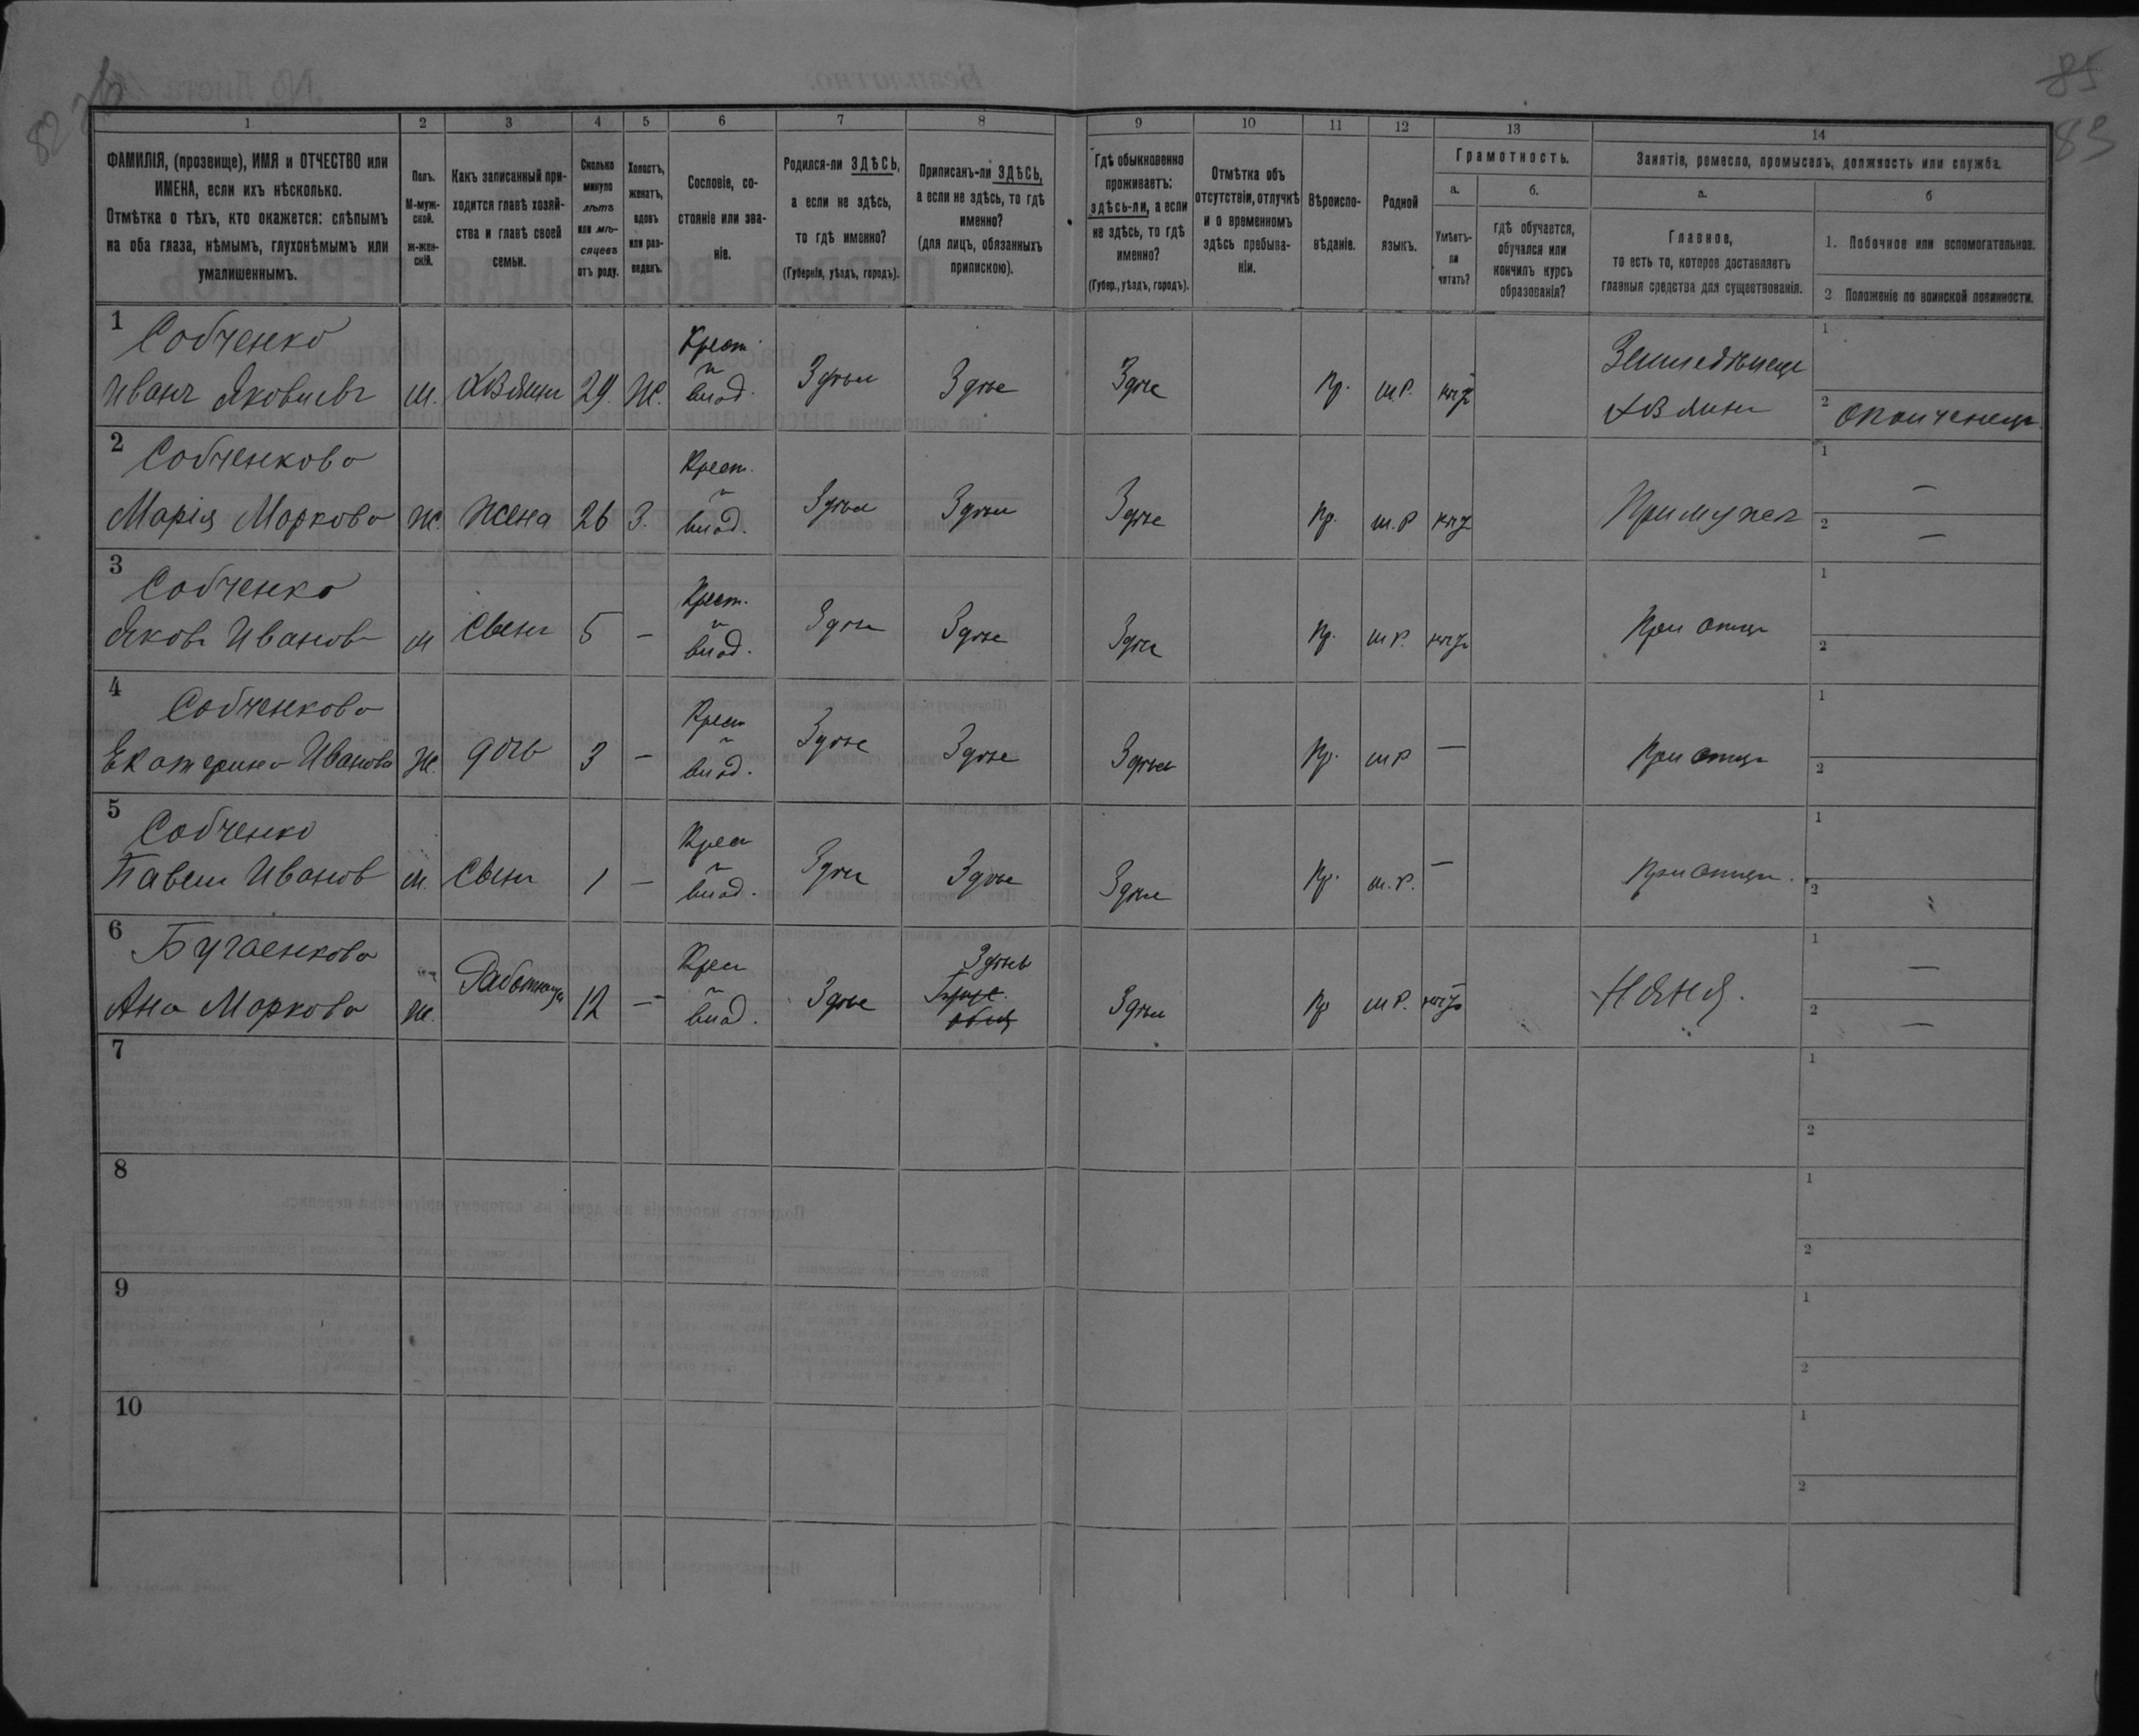 85
83
1 2 3 4 5 6 7 8 9 10 11 12 13 14
ФАМИЛІЯ, (прозвище), ИМЯ и ОТЧЕСТВО или
ИМЕНА, если ихъ нѣсколько.
Отмѣтка о тѣхъ, кто окажется: слѣпымъ
на оба глаза, нѣмымъ, глухонѣмымъ или
умалишеннымъ.
Полъ.
М-муж-
ской.
ж-жен-
скій.
Какъ записанный при-
ходится главѣ хозяй-
ства и главѣ своей
семьи.
Сколько
минуло
лѣтъ
или мѣ-
сяцевъ
отъ роду.
Холостъ,
женатъ,
вдовъ
или раз-
веденъ.
Сословіе, со-
стояніе или зва-
ніе.
Родился-ли ЗДѢСЬ,
а если не здѣсь,
то гдѣ именно?
(Губернія, уѣздъ, городъ).
Приписанъ-ли ЗДѢСЬ,
а если не здѣсь, то гдѣ
именно?
(для лицъ, обязанныхъ
припискою).
Гдѣ обыкновенно
проживаетъ:
здѣсь-ли, а если
не здѣсь, то гдѣ
именно?
(Губер., уѣздъ, городъ).
Отмѣтка объ
отсутствіи, отлучкѣ
и о временномъ
здѣсь пребыва-
ніи.
Вѣроиспо-
вѣданіе.
Родной
языкъ.
Грамотность.
а.
Умѣетъ-
ли
читать?
б.
гдѣ обучается,
обучался или
кончилъ курсъ
образованія?
Занятіе, ремесло, промыселъ, должность или служба.
а.
Главное,
то есть то, которое доставляетъ
главныя средства для существованія.
б
1. Побочное или вспомогательное.
2 Положеніе по воинской повинности.
1 Собченко Крест. Земледѣлецъ 1
Иванъ Яковлевъ м. хозяинъ 29. Ж. и влад. Здѣсь Здѣсь Здѣсь Пр. м.Р. нѣтъ хозяинъ 2 ополченецъ
2 Собченкова Крест. 1 —
Марія Маркова ж. жена 26 З. и влад. Здѣсь Здѣсь Здѣсь Пр. м.Р нѣтъ При мужѣ 2 —
3 Собченко Крест. 1
Яковъ Ивановъ м сынъ 5 — и влад. Здѣсь Здѣсь Здѣсь Пр. м Р. нѣтъ При отцѣ 2
4 Собченкова Крест 1
Екатерина Иванова Ж. дочь 3 — и влад. Здѣсь Здѣсь Здѣсь Пр. м Р — При отцѣ 2
5 Собченко Крес 1
Павелъ Иванов м. сынъ 1 — и влад. Здѣсь Здѣсь Здѣсь Пр. м.Р. — При отцѣ. 2
6 Бугаенкова Работница Крес Здѣсь 1 —
Ана Маркова ж. 12 — и влад. Здѣсь Здѣсь Пр м Р. нѣтъ Няня. 2 —
7 1
2
8 1
2
9 1
2
10 1
2